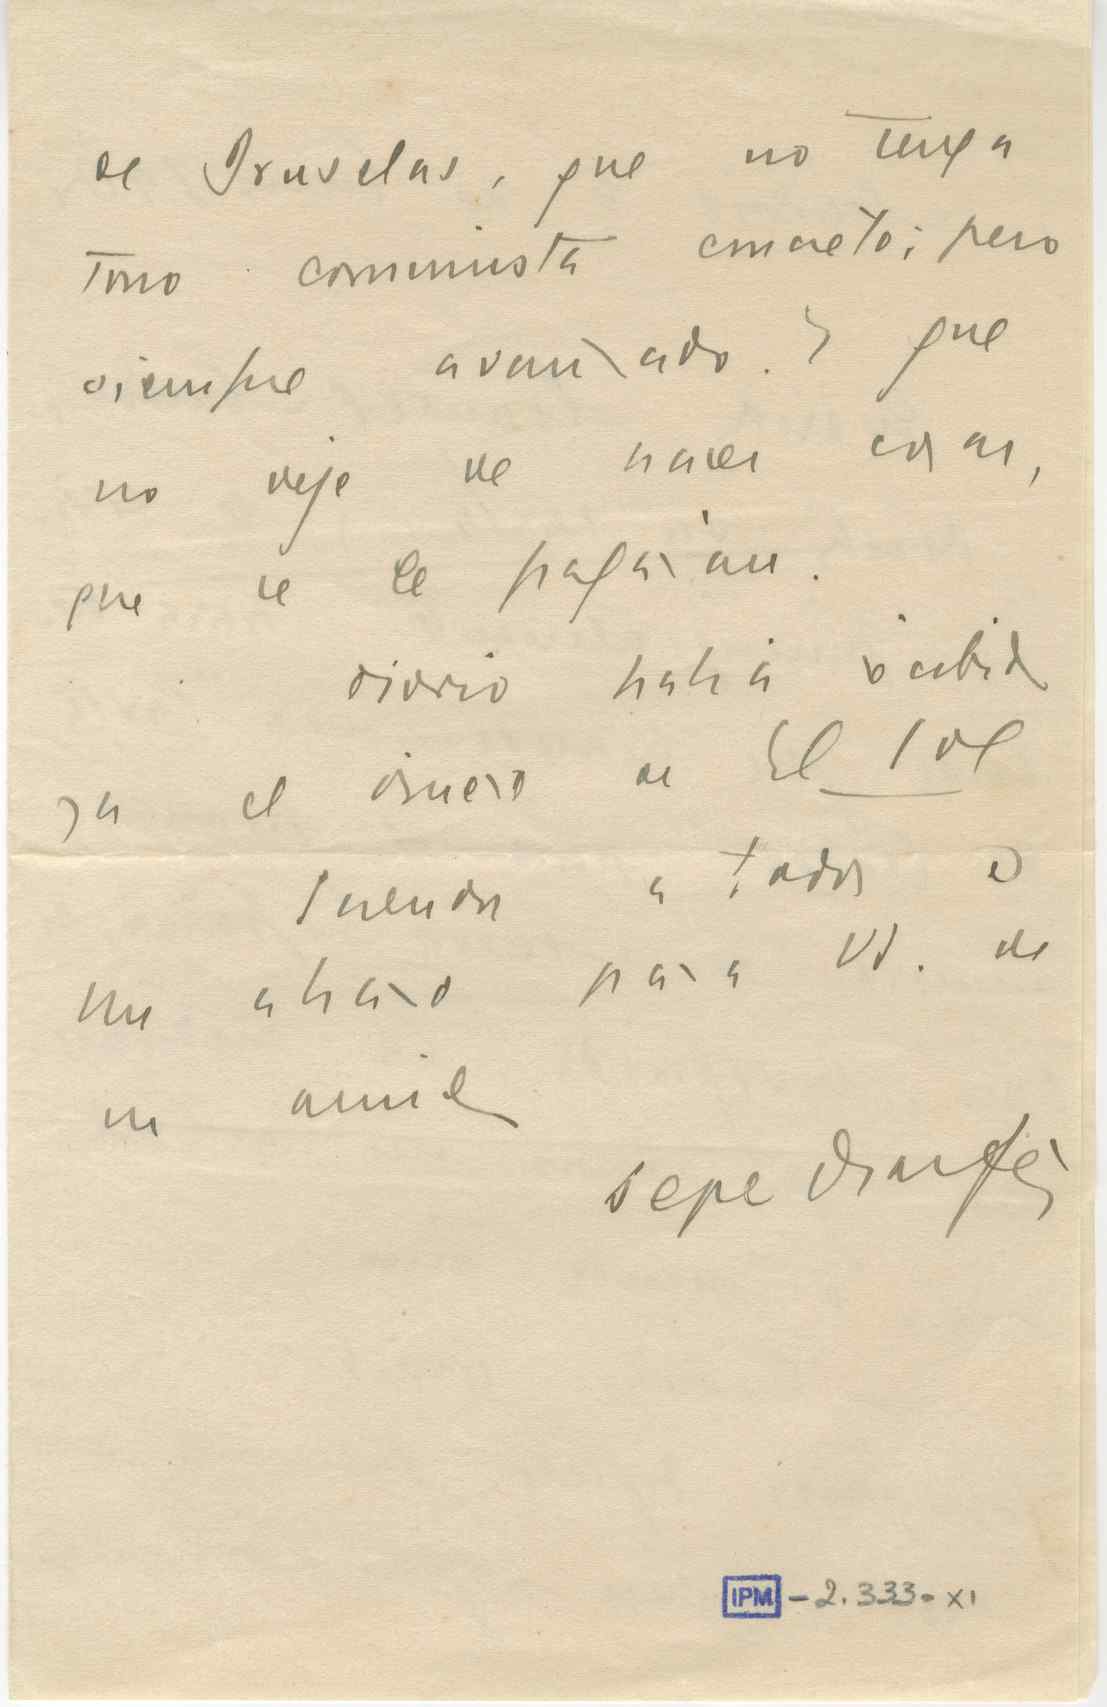 de Bruselas, que no tenga
tono comunista concreto; pero
siempre avanzado. Y que
no deje de hacer cosas,
que se le pagarán.
diario habrá recibido
ya el dinero de El Sol
Recuerdos a todos y
un abrazo para Vd. de
su amigo
Pepe Díaz Fdez
IPM - 2.333 - XI